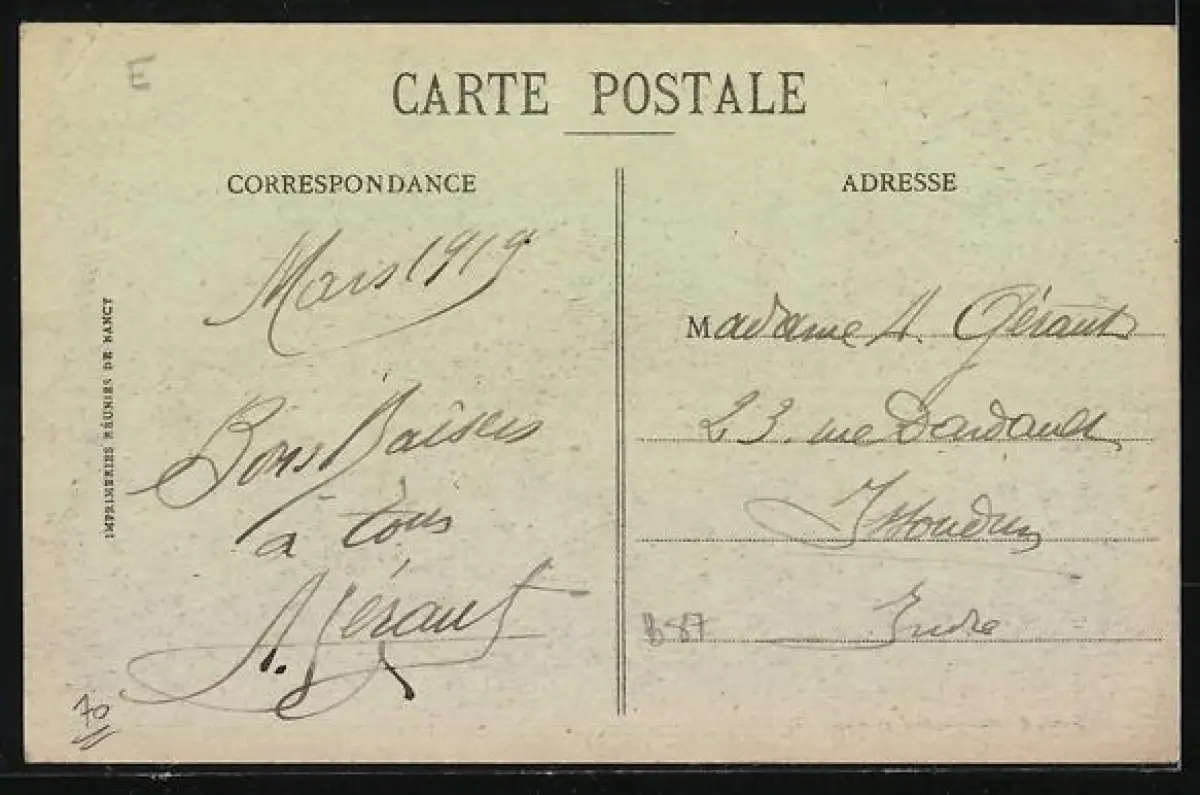 E
CARTE POSTALE
CORRESPONDANCE
Mars 1919
Bons Baisers
à tous
A. Géraut
70
IMPRIMERIES RÉUNIES DE NANCY
ADRESSE
Madame A. Géraut
23. rue Dardault
Issoudun
B 87
Indre